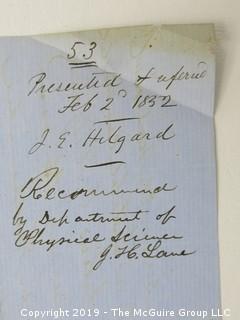 53
Presented &
Feb 2d 1882
J. E. Hilgard
Recommend
by Department of
Physical Science
J. H. Lane
Copyright 2019 - The McGuire Group LLC